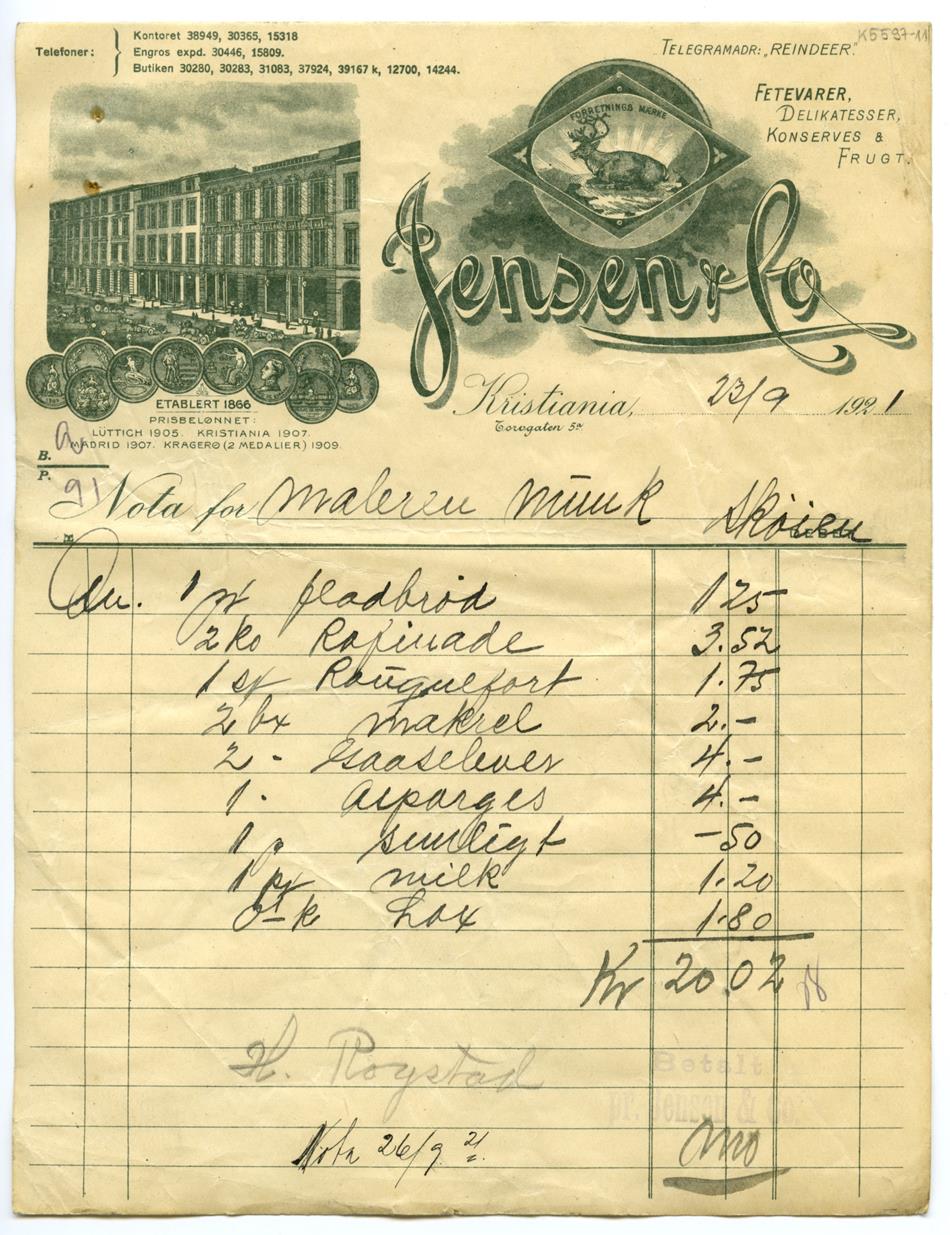 K5597-11
Telefoner:
Kontoret 38949, 30365, 15318
Engros expd. 30446, 15809.
Butiken 30280, 30283, 31083, 37924, 39167 k, 12700, 14244.
TELEGRAMADR: „REINDEER."
FETEVARER,
DELIKATESSER,
KONSERVES &
FRUGT.
FORRETNINGS MÆRKE
Jensen & Co
ETABLERT 1866
PRISBELØNNET:
LÜTTICH 1905. KRISTIANIA 1907.
MADRID 1907. KRAGERØ (2 MEDALIER) 1909.
Kristiania, 23/9 1921
Torvgaten 5a
B.
P. 91
Nota for Maleren Munk Skøien
DEBET
1 pk fladbrød 1 25
2 ko Rafinade 3.52
1 st Rouquefort 1.75
2 bx Makrel 2.-
2 - Gaaselever 4.-
1 - Asparges 4.-
1 p sunligt -50
1 milk 1.20
k Lax 1.80
Kr 20.02
H. Rogstad
Betalt
pr. Jensen & Co.
Nota 26/9 21.